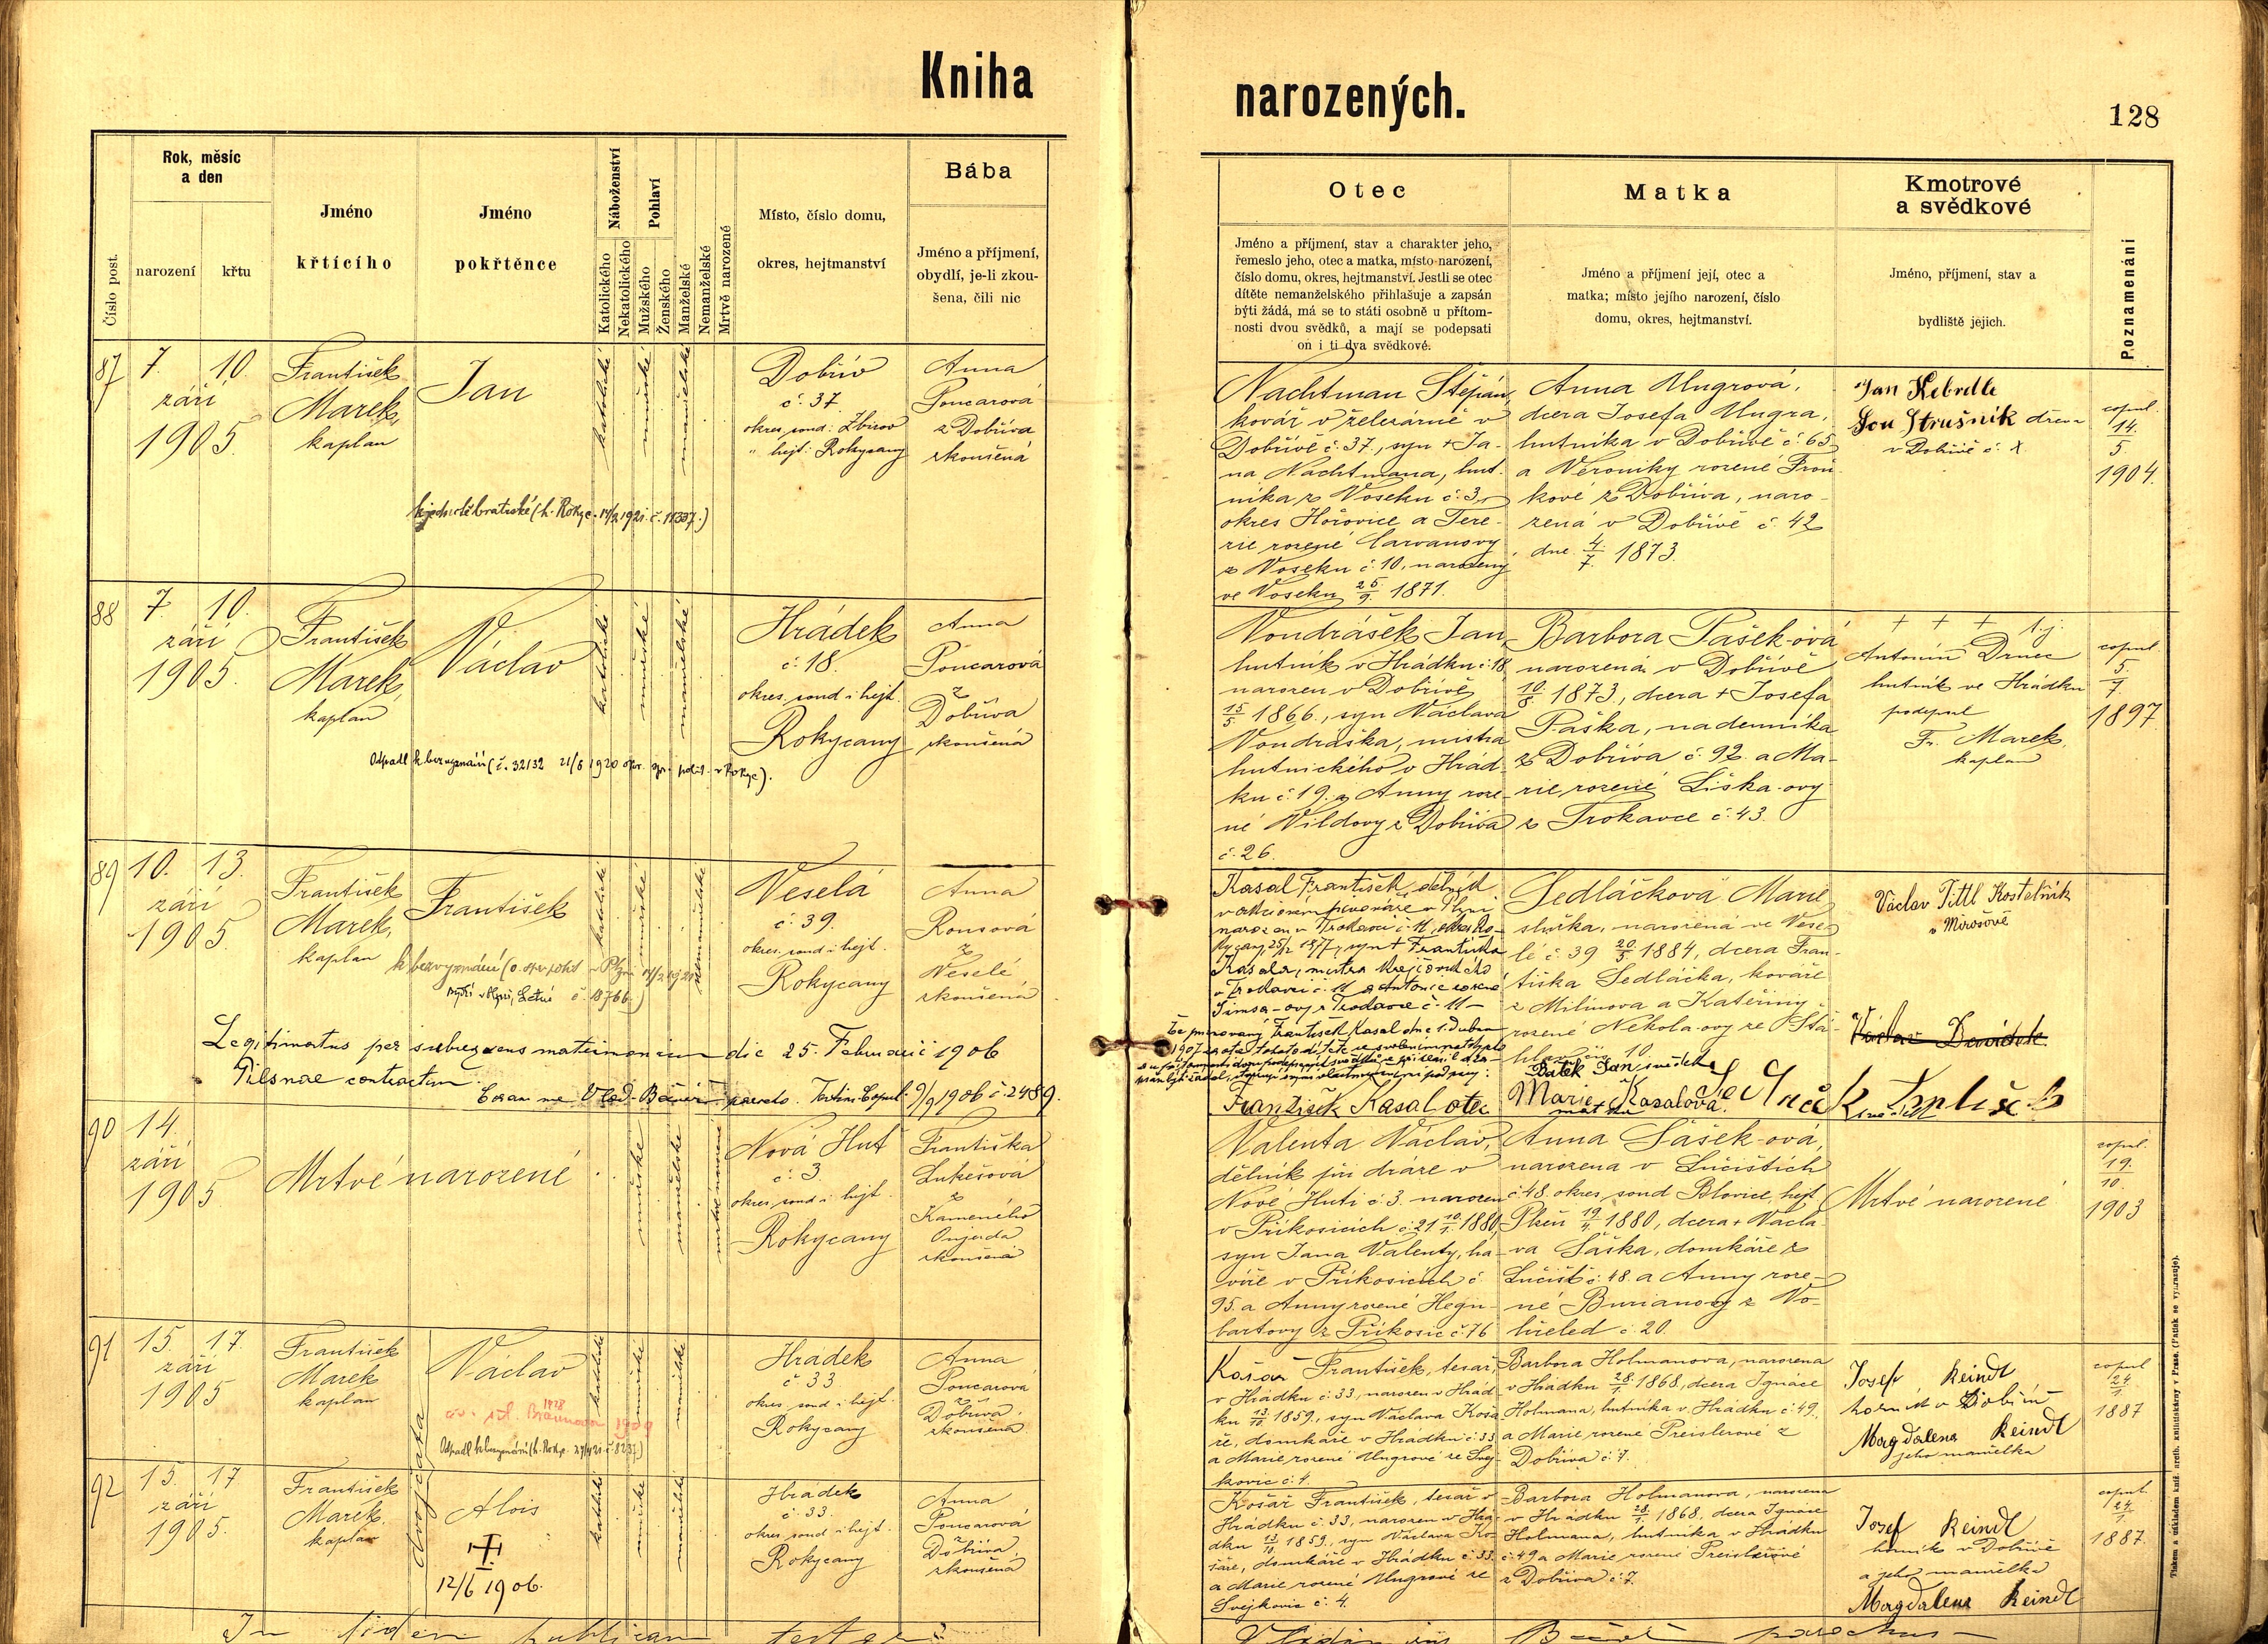 Kniha narozených.
128
Číslo post.
Rok, měsíc
a den
narození
křtu
Jméno
křtícího
Jméno
pokřtěnce
Náboženství
Katolického
Nekatolického
Pohlaví
Mužského
Ženského
Manželské
Nemanželské
Mrtvě narozené
Místo, číslo domu,
okres, hejtmanství
Bába
Jméno a příjmení,
obydlí, je-li zkou-
šena, čili nic
Otec
Jméno a příjmení, stav a charakter jeho,
řemeslo jeho, otec a matka, místo narození,
číslo domu, okres, hejtmanství. Jestli se otec
dítěte nemanželského přihlašuje a zapsán
býti žádá, má se to státi osobně u přítom-
nosti dvou svědků, a mají se podepsati
on i ti dva svědkové.
Matka
Jméno a příjmení její, otec a
matka; místo jejího narození, číslo
domu, okres, hejtmanství.
Kmotrové
a svědkové
Jméno, příjmení, stav a
bydliště jejich.
Poznamenání
87
7. 10.
září
1905.
František
Marek,
kaplan
Jan
katolické
mužské
manželské
Dobřív
č. 37
okres soud: Zbirov
" hejt: Rokycany
Anna
Poncarová
z Dobříva
zkoušená
Nachtman Štěpán,
kovář v železárně v
Dobřívě č. 37, syn + Ja-
na Nachtmana, hut-
níka z Voseku č. 3,
okres Hořovice a Tere-
zie rozené
z Voseku č. 10, narozený
ve Voseku 25/9. 1871.
Anna Ungrová,
dcera Josefa Ungra,
hutníka v Dobřívě č. 65
a Veroniky rozené Froň-
kové z Dobříva, naro-
zená v Dobřívě č. 42
dne 4/7. 1873.
Jan Kebrdle
Jan Strušník
v Dobřívě č.
copul.
14.
5.
1904.
88
7. 10.
září
1905.
František
Marek,
kaplan
Václav
katolické
mužské
manželské
Odpadl k bezvyznání (č. 32132 21/8 1920 okr. spr. polit. v Rokyc.).
Hrádek
č. 18.
okres soud i hejt.
Rokycany
Anna
Poncarová
z
Dobříva
zkoušená
Vondrášek Jan,
hutník v Hrádku č. 18
narozen v Dobřívě
15/5. 1866, syn Václava
Vondráška, mistra
hutnického v Hrád-
ku č. 19. a Anny roze-
né Vildovy z Dobříva
č. 26.
Barbora Pašek-ová
narozená v Dobřívě
10/8. 1873, dcera + Josefa
Paška, nadenníka
z Dobříva č. 92. a Ma-
rie rozené Liška-ovy
z Trokavce č. 43.
+ + + t.j.
Antonín Drnec
hutník ve Hrádku
podepsal
Fr. Marek,
kaplan
copul.
5
7
1897.
89
10. 13.
září
1905.
František
Marek,
kaplan
František
katolické
mužské
nemanželské
Veselá
č. 39.
okres soud i hejt.
Rokycany
Anna
Rousová
z
Veselé
zkoušená
Legitimatus per subsequens matrimonium die 25. Februarii 1906
Pilsnae contractum.
Kasal František, dělník
v akciovém pivováře v Plzni
narozen v Trokavci č. 11, okres Ro-
kycany, 25/2 1877, syn + Františka
Kasala, mistra krejčovského
v Trokavci č. 11 a Antonie rozené
Šimsa-ovy z Trokavce č. 11 –
František Kasal otec
Sedláčková Marie
služka, narozená ve Vese-
lé č. 39 20/5 1884, dcera Fran-
tiška Sedláčka, kováře
z Milínova a Kateřiny
rozené Nekola-ovy ze Ště-
Bítek Jan svědek
Marie Kasalová
matka
Václav Tittl Kostelník
v Mirošově
90
14.
září
1905
Mrtvé narozené
mužské
manželské
mrtvě narozené
Nová Huť
č. 3
okres soud i hejt.
Rokycany
Františka
Lukešová
z
Kameného
Oujezda
zkoušená
Valenta Václav,
dělník při dráze v
Nové Huti č. 3. narozen
v Příkosicích č. 21 10/1. 1880,
syn Jana Valenty, ha-
víře v Příkosicích č.
95. a Anny rozené Hegn-
bartovy z Příkosic č. 76
Anna Šášek-ová,
narozena v Lučištích
č. 48. okres soud Blovice, hejt
Plzeň 19/4. 1880, dcera + Václa-
va Šáška, domkáře z
Lučišť č. 48. a Anny roze-
né Burianovy z No-
hřeled č. 20.
Mrtvé narozené
copul.
19.
10.
1903
91
15. 17.
září
1905
František
Marek
kaplan
Václav
dvojčata
katolické
mužské
manželské
Hrádek
č. 33
okres soud i hejt.
Rokycany
Anna
Poncarová
z
Dobříva
zkoušená
Košař František, tesař,
v Hrádku č. 33, narozen v Hrád-
ku 13/10. 1859, syn Václava Koša-
ře, domkáře v Hrádku č. 33
a Marie rozené Ungrové ze Svej-
kovic č. 4.
Barbora Holmanova, narozena
v Hrádku 28/1. 1868, dcera Ignáce
Holmana, hutníka v Hrádku č. 49.
a Marie rozené Preislerové z
Dobříva č. 7.
Josef Reindl
horník v Dobřívě
Magdalena Reindl
jeho manželka
copul
24
1.
1887
92
15. 17
září
1905.
František
Marek
kaplan
Alois
12/6 1906.
katolické
mužské
manželské
Hrádek
č. 33.
okres soud i hejt.
Rokycany
Anna
Poncarová
z
Dobříva
zkoušená
Košař František, tesař v
Hrádku č. 33, narozen v Hrá-
dku 13/10. 1859, syn Václava Ko-
šaře, domkáře v Hrádku č. 33.
a Marie rozené Ungrové ze
Svejkovic č. 4.
Barbora Holmanova, narozena
v Hrádku 28/1. 1868, dcera Ignáce
Holmana, hutníka v Hrádku
č. 49 a Marie rozené Preislerové
z Dobříva č. 7.
Josef Reindl
horník v Dobřívě
a jeho manželka
Magdalena Reindl
copul.
24
1.
1887.
In fidem publicam